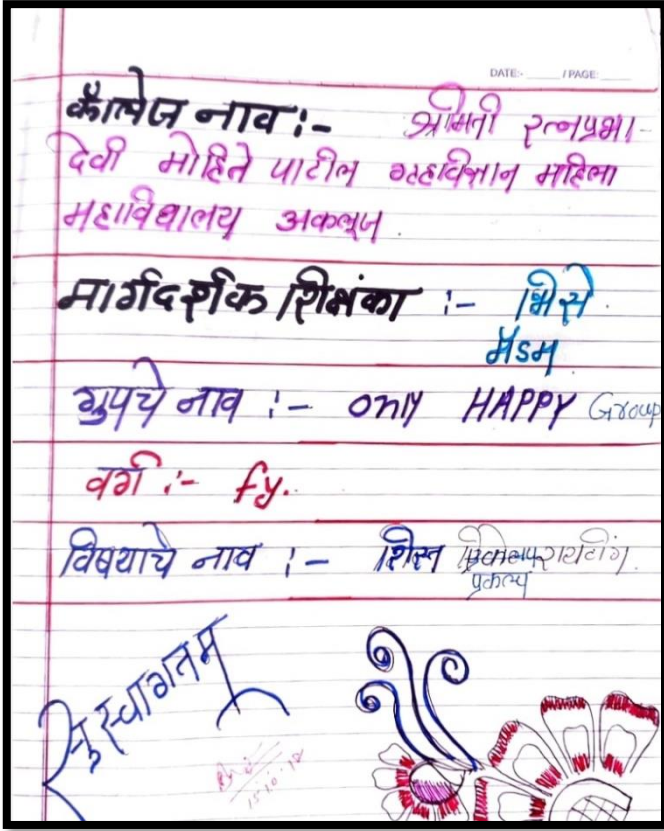 DATE:- /PAGE:
कॉलेज नाव :- श्रीमती रत्नप्रभा-
देवी मोहिते पाटील गृहविज्ञान महिला
महाविद्यालय अकलूज.
मार्गदर्शक शिक्षिंका :- भिसे
मॅडम
ग्रुपचे नाव :- only HAPPY Group
वर्ग :- fy.
विषयाचे नाव :- शिस्त
प्रकल्प
सुस्वागतम
15.10.18